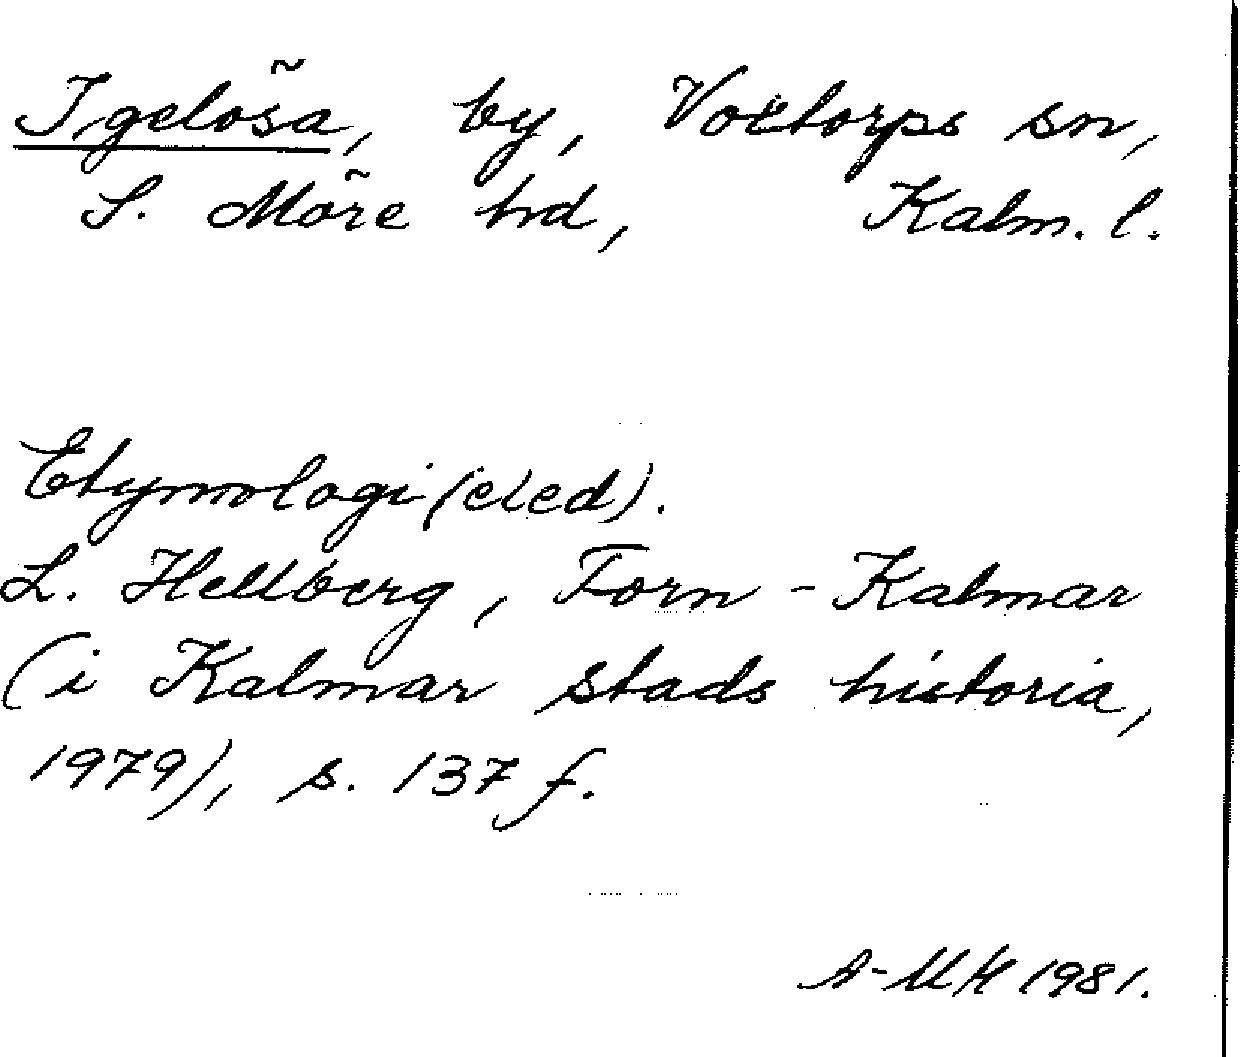 Igelösa, by, Voxtorps sn,
S. Möre hd, Kalm. l.
Etymologi (eled).
L. Hellberg, Forn-Kalmar
(i Kalmar stads historia,
1979), s. 137 f.
A-MH 1981.